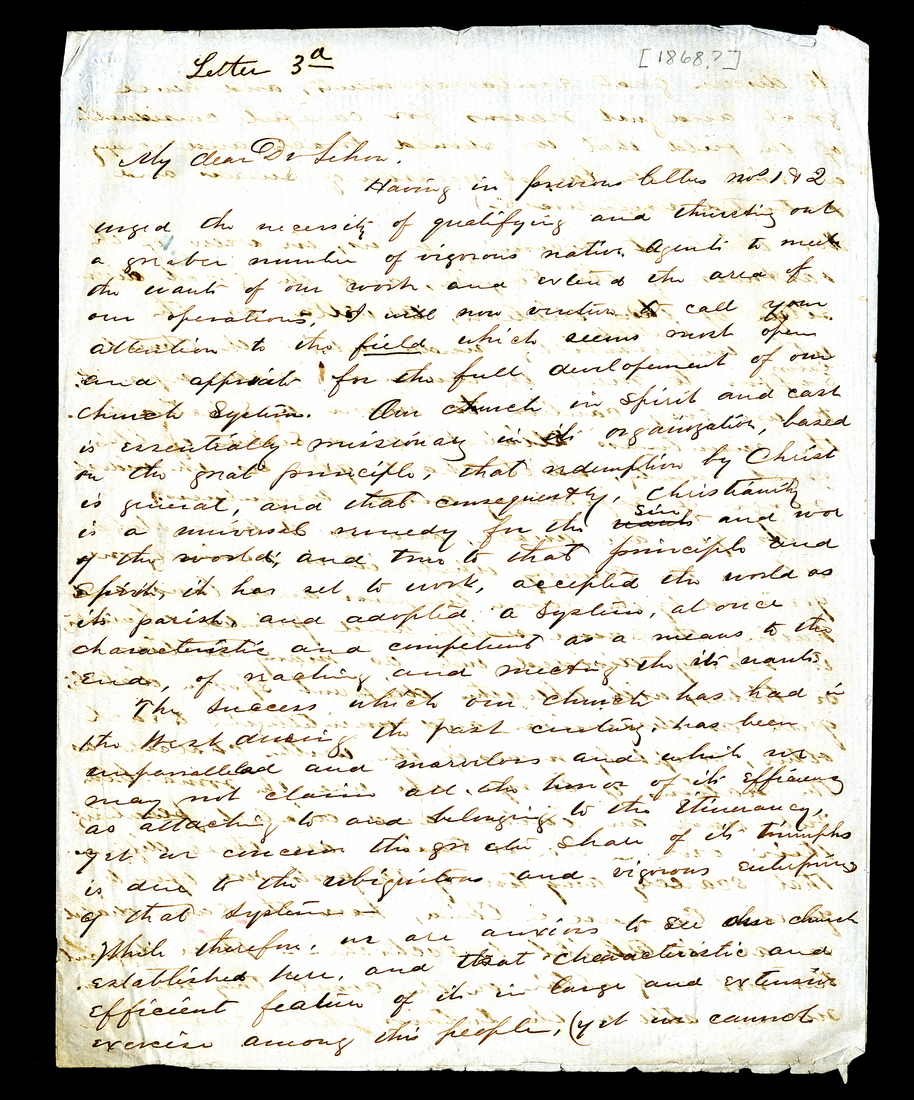 Letter 3d
[1868?]
My dear Dr Sehon.
Having in previous letters nos 1 & 2
urged the necessity of qualifying and thrusting out
a greater number of vigorous native Agents to meet
the wants of our work and extend the area of
our operations, I will now venture to call your
attention to the field which seems most open
and for the full developement of our
church System. Our church in Spirit and cast
is essentially missionary in its organization, based
on the great principle, that redemption by Christ
is general, and that consequently, Christianity
is a universal remedy for the sin wants and woe
of the world; and true to that principle and
Spirit, it has set to work, accepted the world as
its parish, and adopted a System, at once
characteristic and competent as a means to this
end, of reaching and meeting the its wants.
The success which our church has had in
the West during the past century, has been
unparalleled and marvelous and while we
may not claim all the honor of its efficiency
as attaching to and belonging to the itinerancy,
yet we conceive the greater share of its triumphs
is due to the ubiquitous and vigorous enterprise
of that System —
While therefore, we are anxious to see our church
established here, and that characteristic and
efficient feature of it in large and extensive
exercise among this people, (yet we cannot